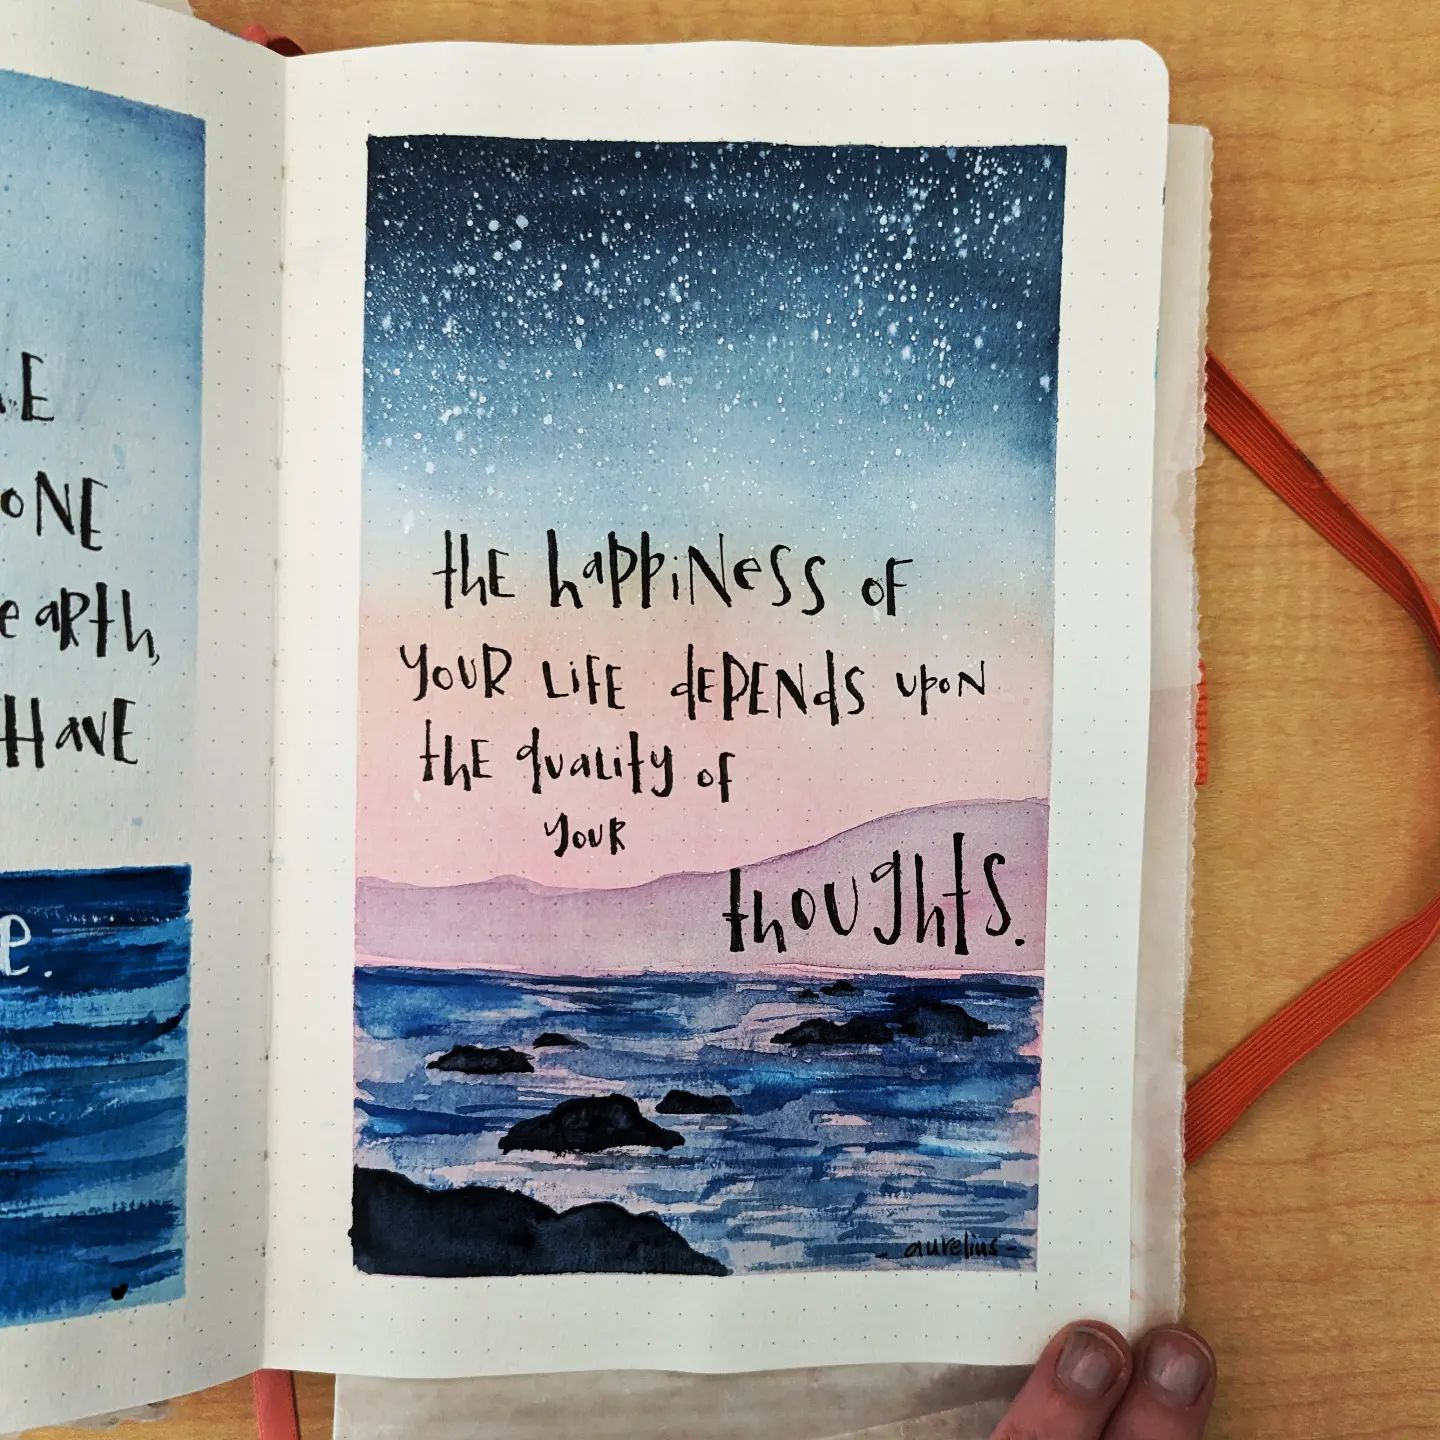 E
ONE
eARth,
HAVE
e.
thE hAPPiNeSS oF
YOUR LiFE dEPENdS UPoN
thE quALity of
YOUR
thoughtS.
- aurelius -